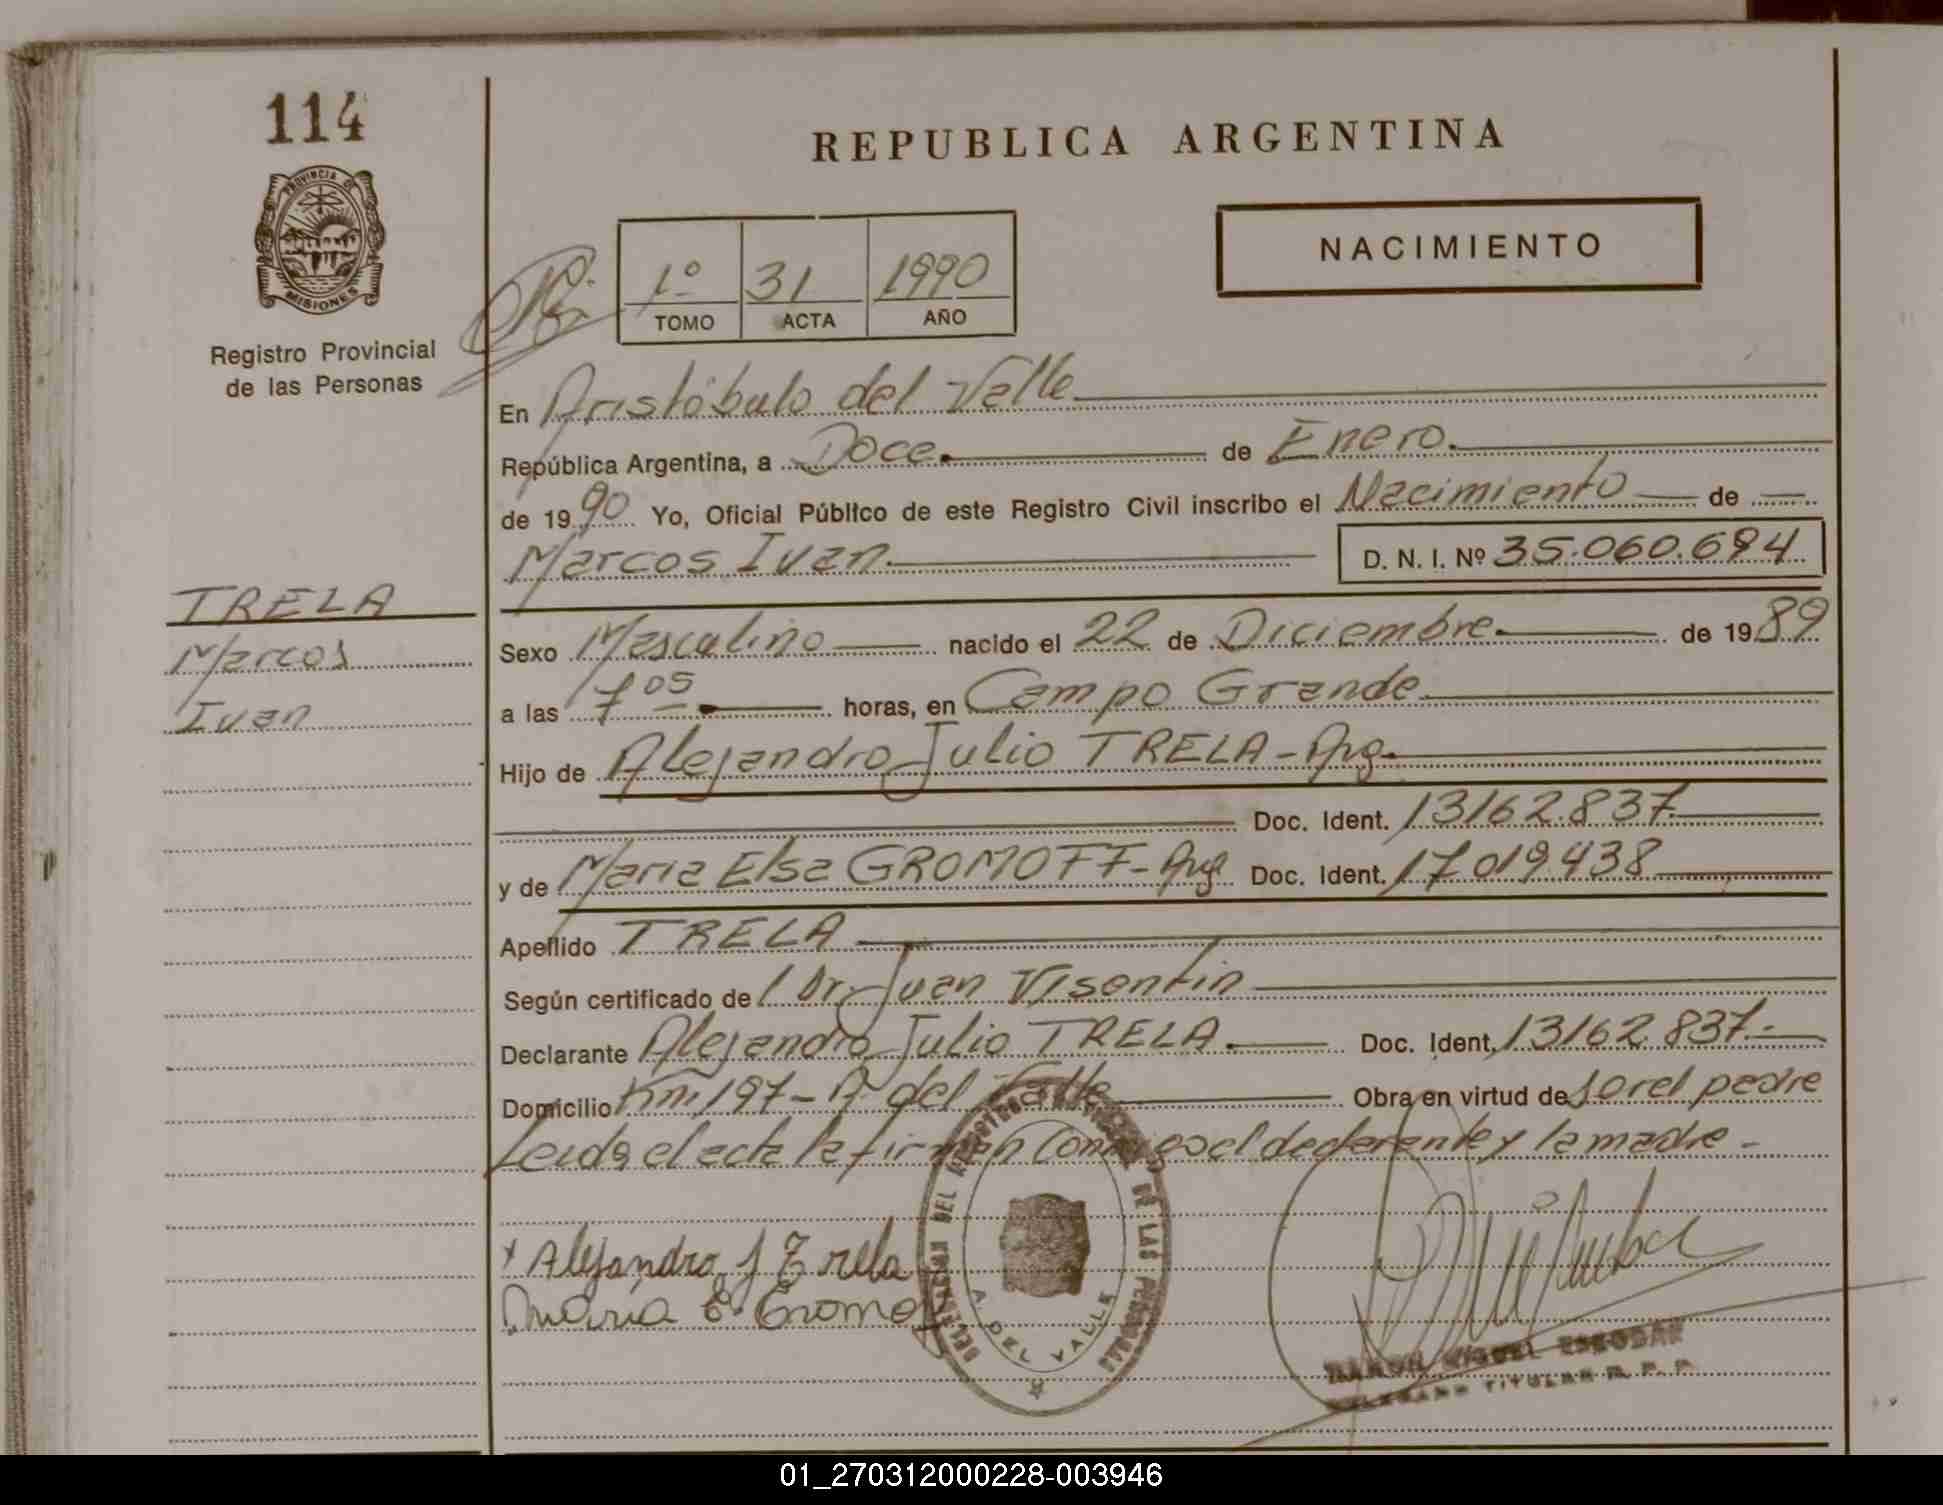 114
REPUBLICA ARGENTINA
PROVINCIA DE
MISIONES
Registro Provincial
de las Personas
NACIMIENTO
1º 31 1990
TOMO ACTA AÑO
En Aristóbulo del Valle
República Argentina, a Doce. de Enero.
de 1990 Yo, Oficial Público de este Registro Civil inscribo el Nacimiento de
Marcos Ivan D. N. I. Nº 35.060.694
TRELA
Marcos
Ivan
Sexo Masculino nacido el 22 de Diciembre de 1989
a las 7 05 horas, en Campo Grande
Hijo de Alejandro Julio TRELA - Arg.
Doc. Ident. 13162.837
y de Maria Elsa GROMOFF - Arg Doc. Ident. 17019.438
Apellido TRELA
Según certificado de Dr. Juan Visentin
Declarante Alejandro Julio TRELA. Doc. Ident. 13162.837.-
Domicilio Km, 197 - A. del Valle Obra en virtud de ser el padre
Leida el acta la firman conmigo el declarante y la madre -
Alejandro J Trela
Maria E. Gromoff
DELEGACION DEL REGISTRO PROVINCIAL DE LAS PERSONAS
A. DEL VALLE
RAMON MIGUEL ESCOBAR
DELEGADO TITULAR R. P. P.
01_270312000228-003946